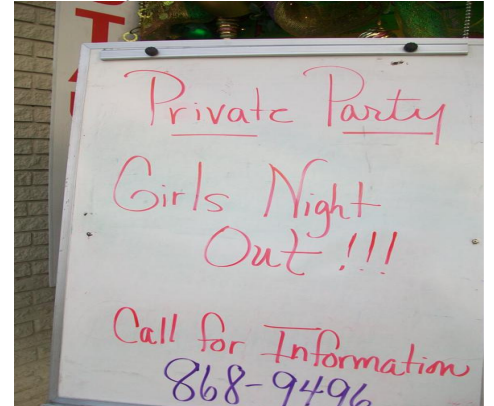 Private Party
Girls Night
Out !!!
Call for Information
868-9496